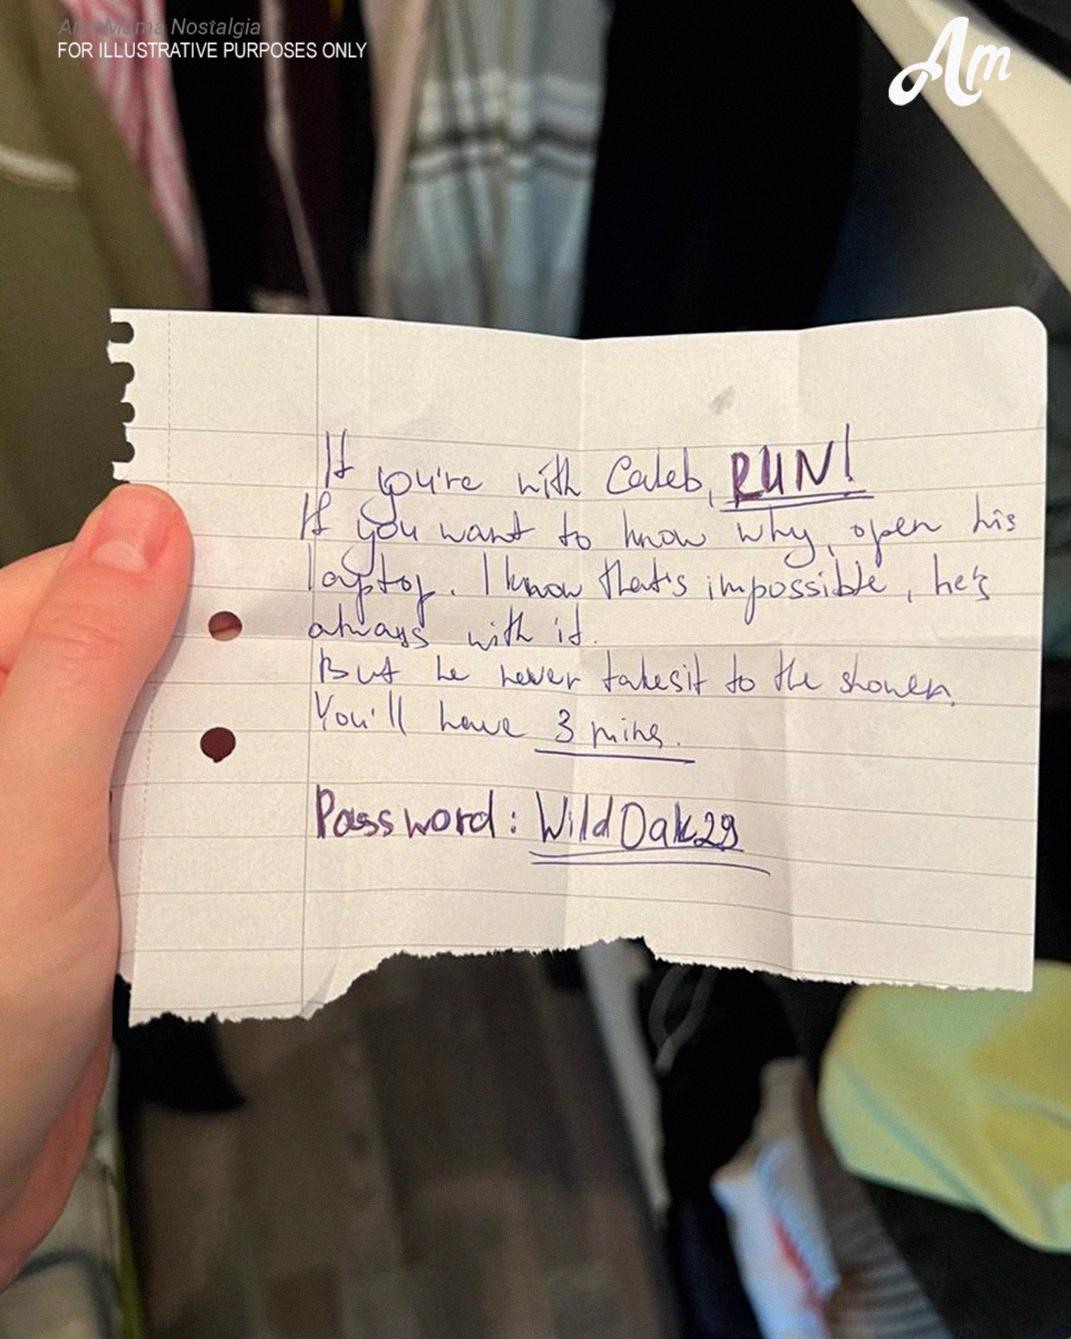 AmoMama Nostalgia
FOR ILLUSTRATIVE PURPOSES ONLY
Am
If you're with Caleb, RUN!
If you want to know why, open his
laptop. I know that's impossible, he's
always with it.
But he never takesit to the shower.
You'll have 3 mins.
Password: WildOak29